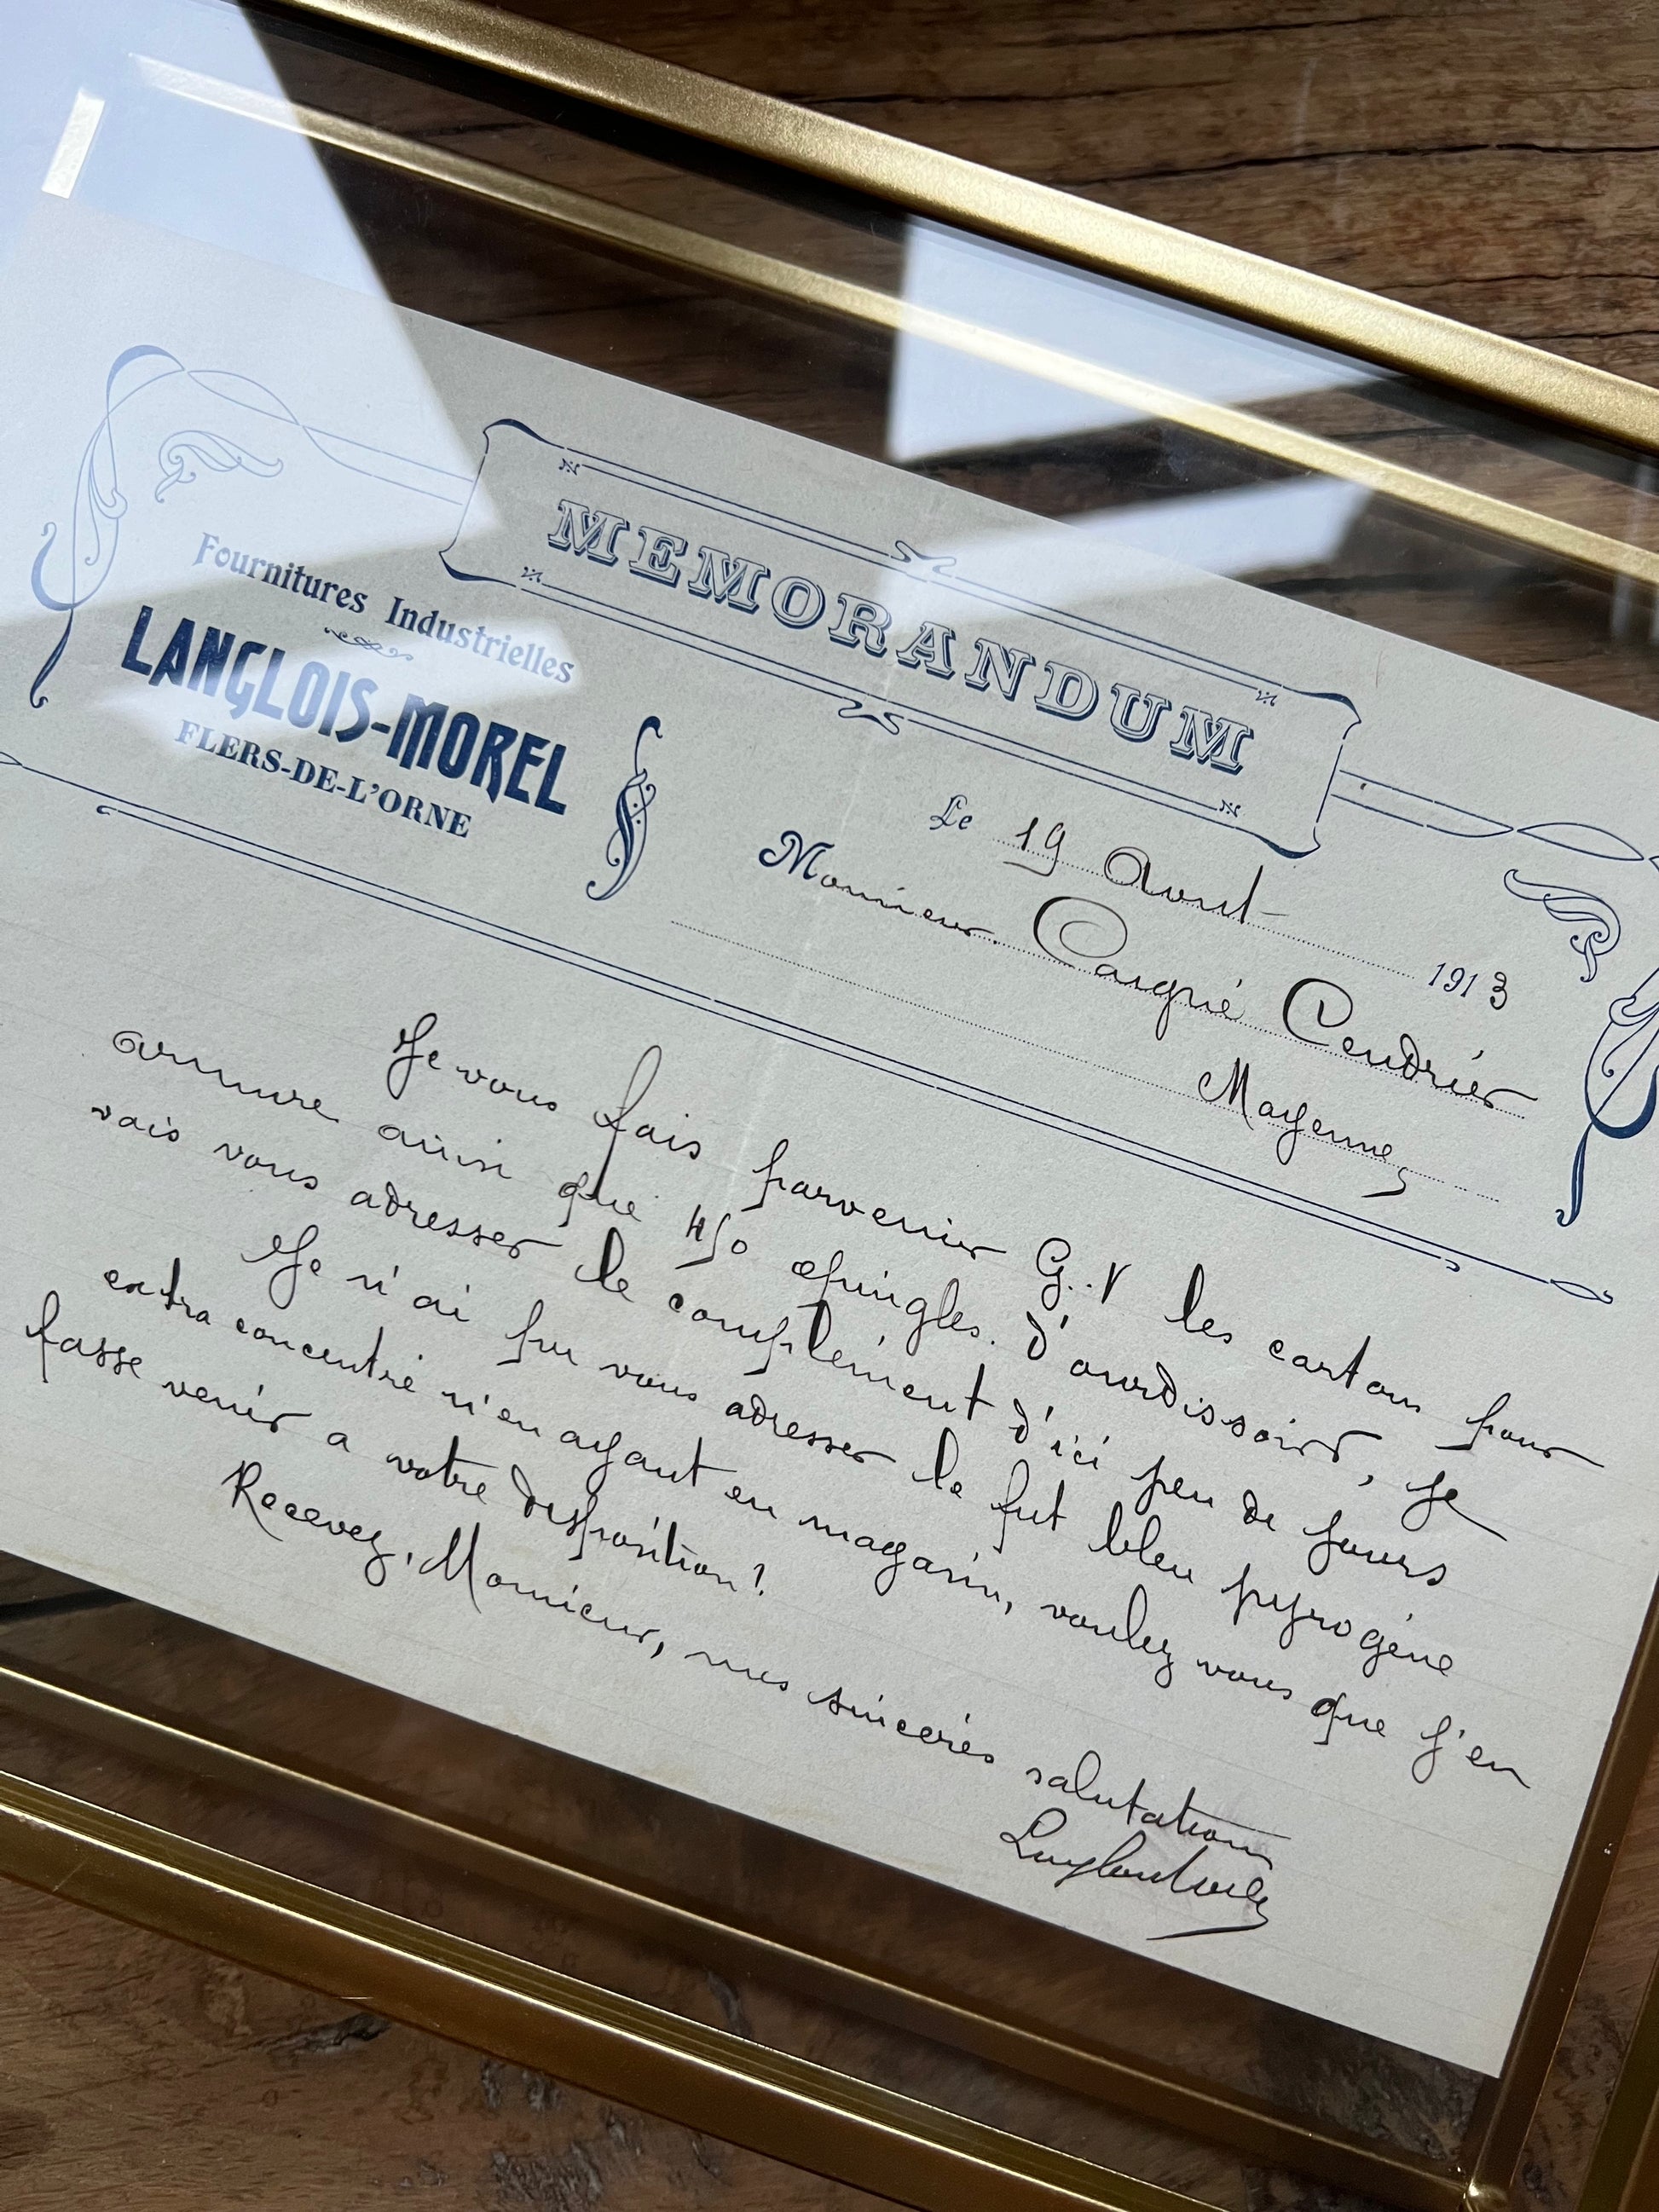 MEMORANDUM
Fournitures Industrielles
LANGLOIS-MOREL
FLERS-DE-L'ORNE
Le 19 Aout 1913
Monsieur Coudrier
Mayenne
Je vous fais parvenir G.V les cartons pour
armure ainsi que 450 epingles d'ourdissoir, je
vais vous adresser le complément d'ici peu de jours
Je n'ai pu vous adresser le fut bleu pyrogène
extra concentré n'en ayant en magasin, voulez vous que j'en
fasse venir a votre disposition!
Recevez, Monsieur, mes sincères salutations